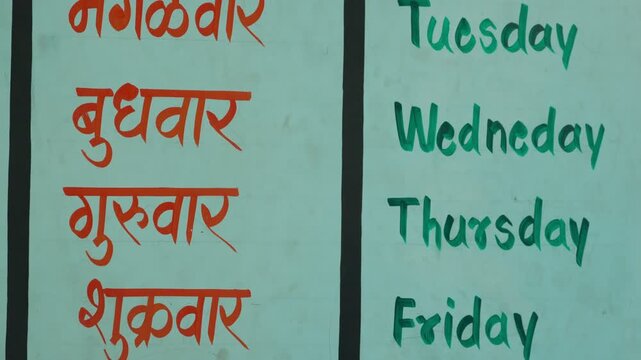 मंगळवार Tuesday
बुधवार Wedneday
गुरुवार Thursday
शुक्रवार Friday